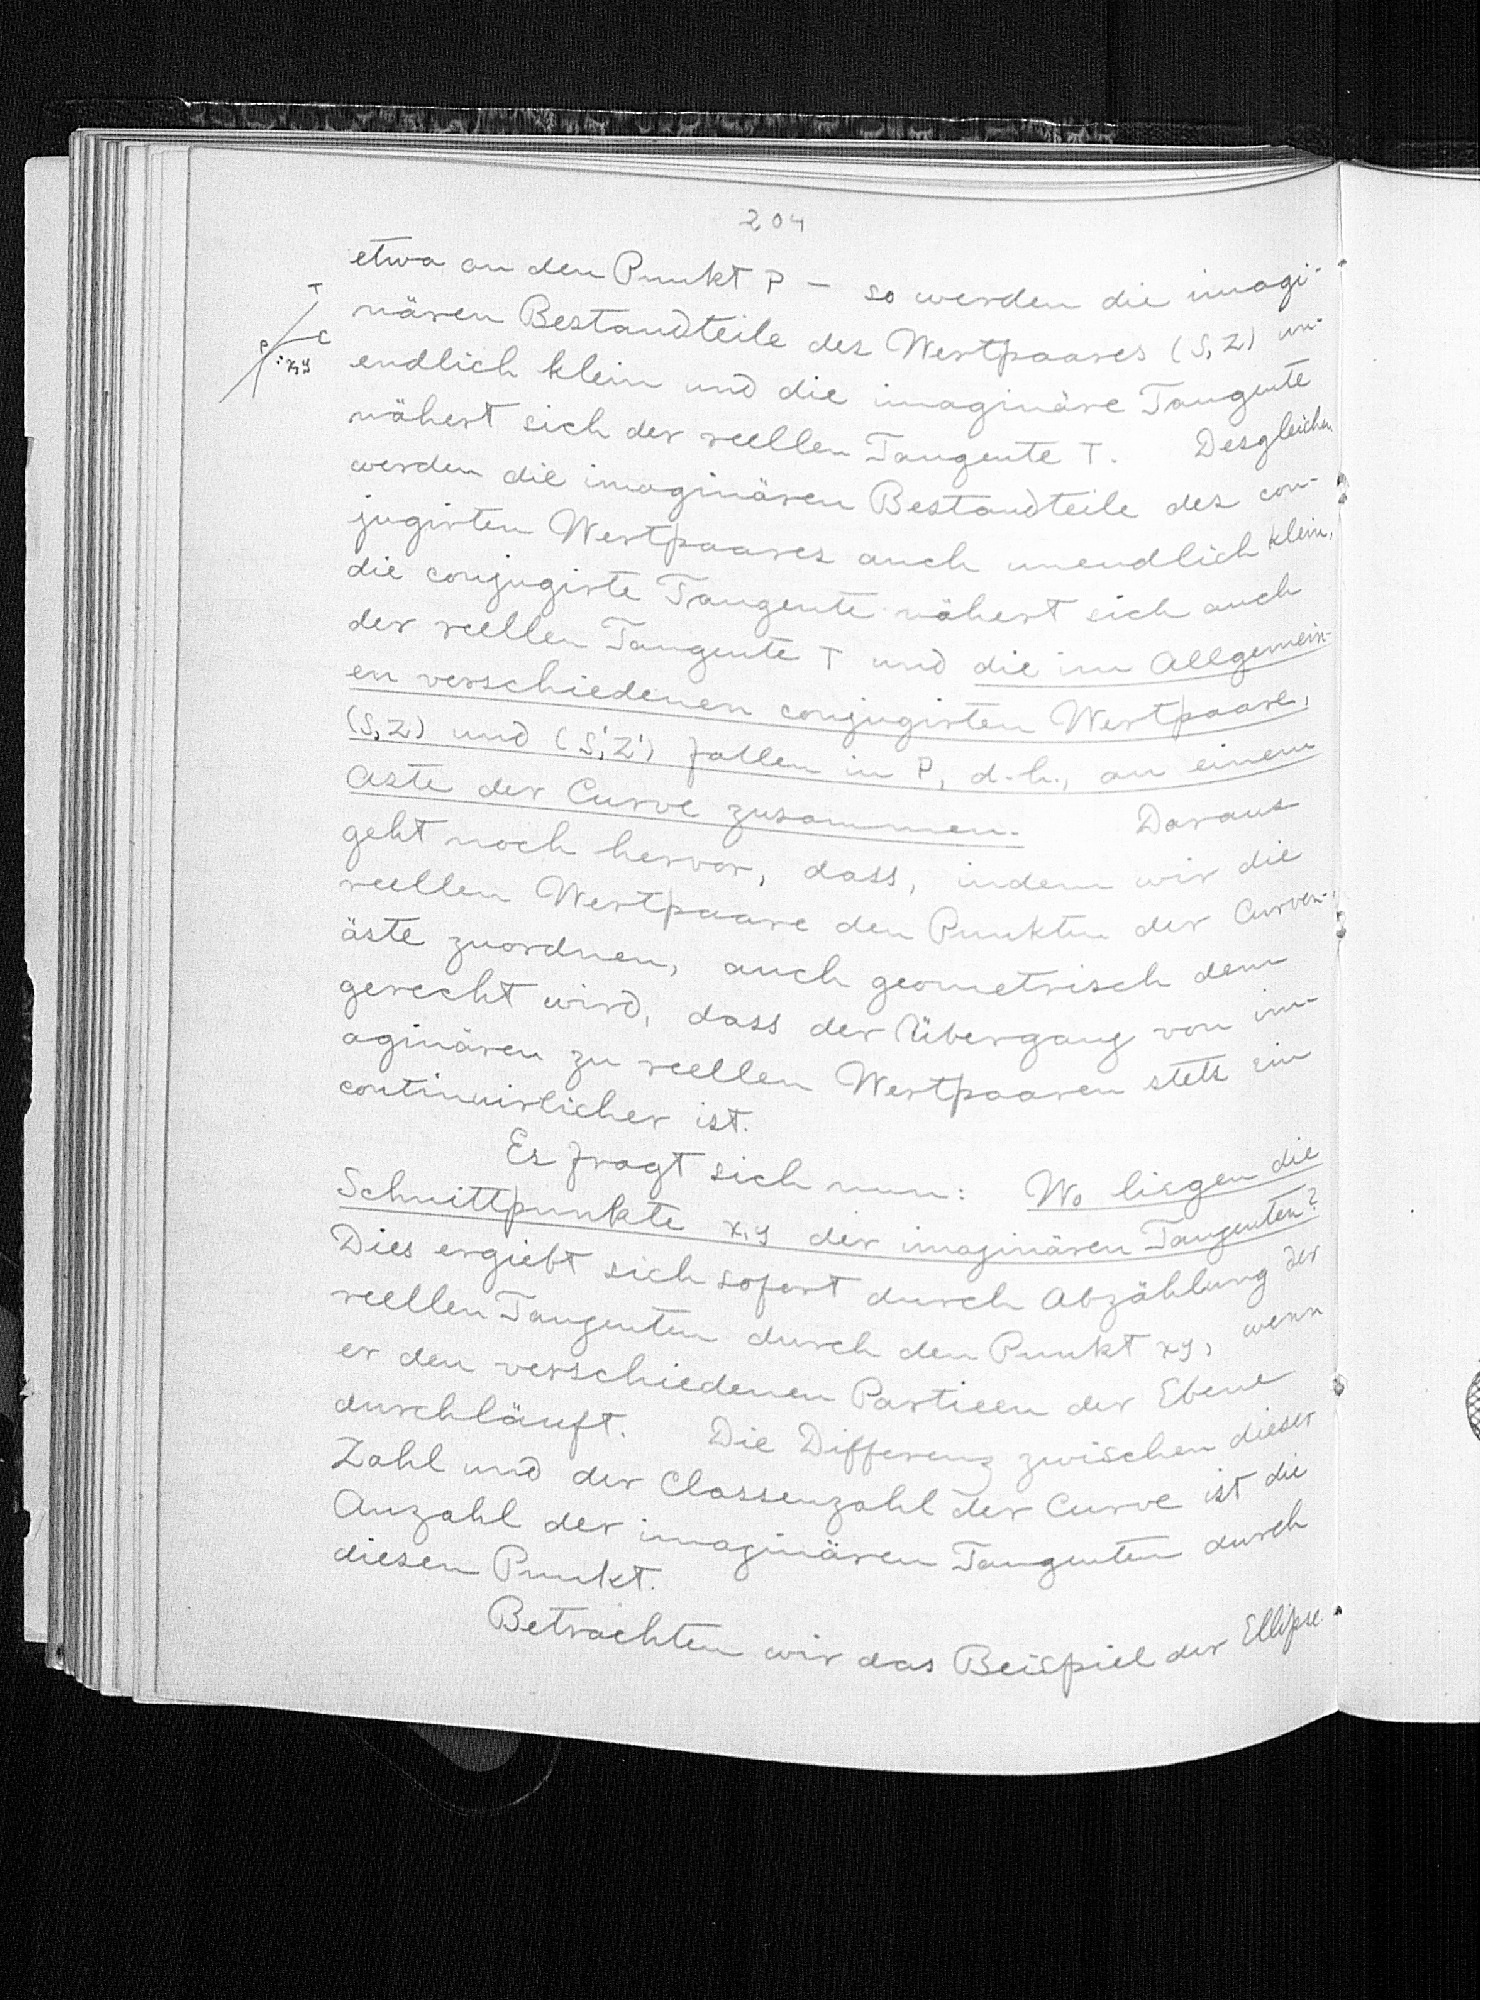 204
etwa an den Punkt P — so werden die imagi-
nären Bestandteile des Wertpaares (s, z) un-
endlich klein und die imaginäre Tangente
nähert sich der reellen Tangente T. Desgleichen
werden die imaginären Bestandteile des con-
jugirten Wertpaares auch unendlich klein,
die conjugirte Tangente nähert sich auch
der reellen Tangente T und die im Allgemein-
en verschiedenen conjugirten Wertpaare,
(s, z) und (s', z') fallen in P, d.h., an einem
Aste der Curve zusammen. Daraus
geht noch hervor, dass, indem wir die
reellen Wertpaare den Punkten der Curven-
äste zuordnen, auch geometrisch dem
gerecht wird, dass der Übergang von im-
aginären zu reellen Wertpaaren stets ein
continuirlicher ist.
Es fragt sich nun: Wo liegen die
Schnittpunkte x,y der imaginären Tangenten?
Dies ergiebt sich sofort durch Abzählung der
reellen Tangenten durch den Punkt xy, wenn
er den verschiedenen Partieen der Ebene
durchläuft. Die Differenz zwischen dieser
Zahl und der Classenzahl der Curve ist die
Anzahl der imaginären Tangenten durch
diesen Punkt.
Betrachten wir das Beispiel der Ellipse
T
C
P
x,y